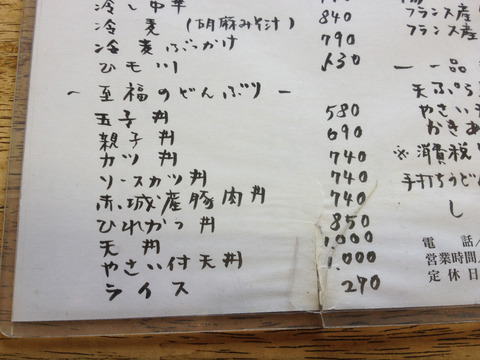 冷し中華
冷麦(胡麻みそ汁) 840
冷麦ぶっかけ 790
ひモ川 630
- 至福のどんぶり -
玉子丼 580
親子丼 690
カツ丼 740
ソースカツ丼 740
赤城産豚肉丼 740
ひれかつ丼 850
天丼 1,000
やさい付天丼 1,000
ライス 270
フランス産
フランス産
- 一品
天ぷら
やさい
かきあ
※消費税
手打ちうどん
し
電話/
営業時間/
定休日